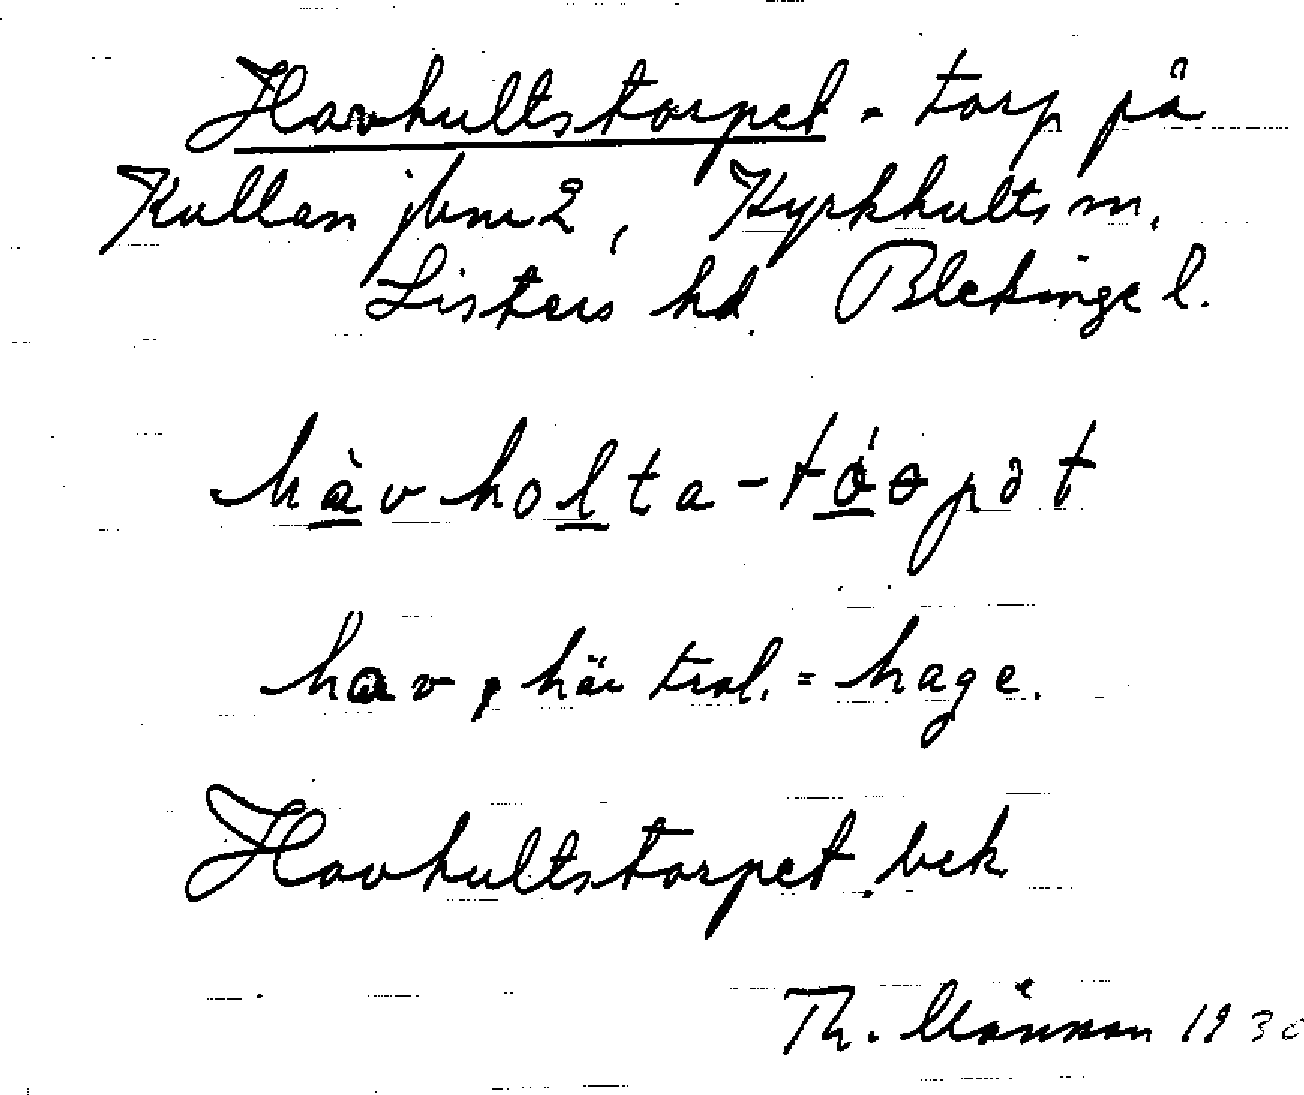 Havhultstorpet - torp på
Kullan jbnr 2, Kyrkhults sn.
Listers hd. Blekinge l.
hàvholta-tóɵpət
hav, här trol. = hage.
Havhultstorpet. bek
Th. 1930